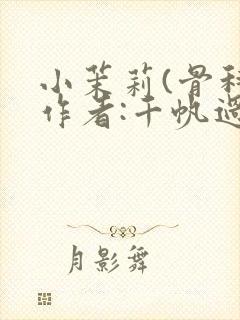 小茉莉(骨科
作者:千帆过
月影舞